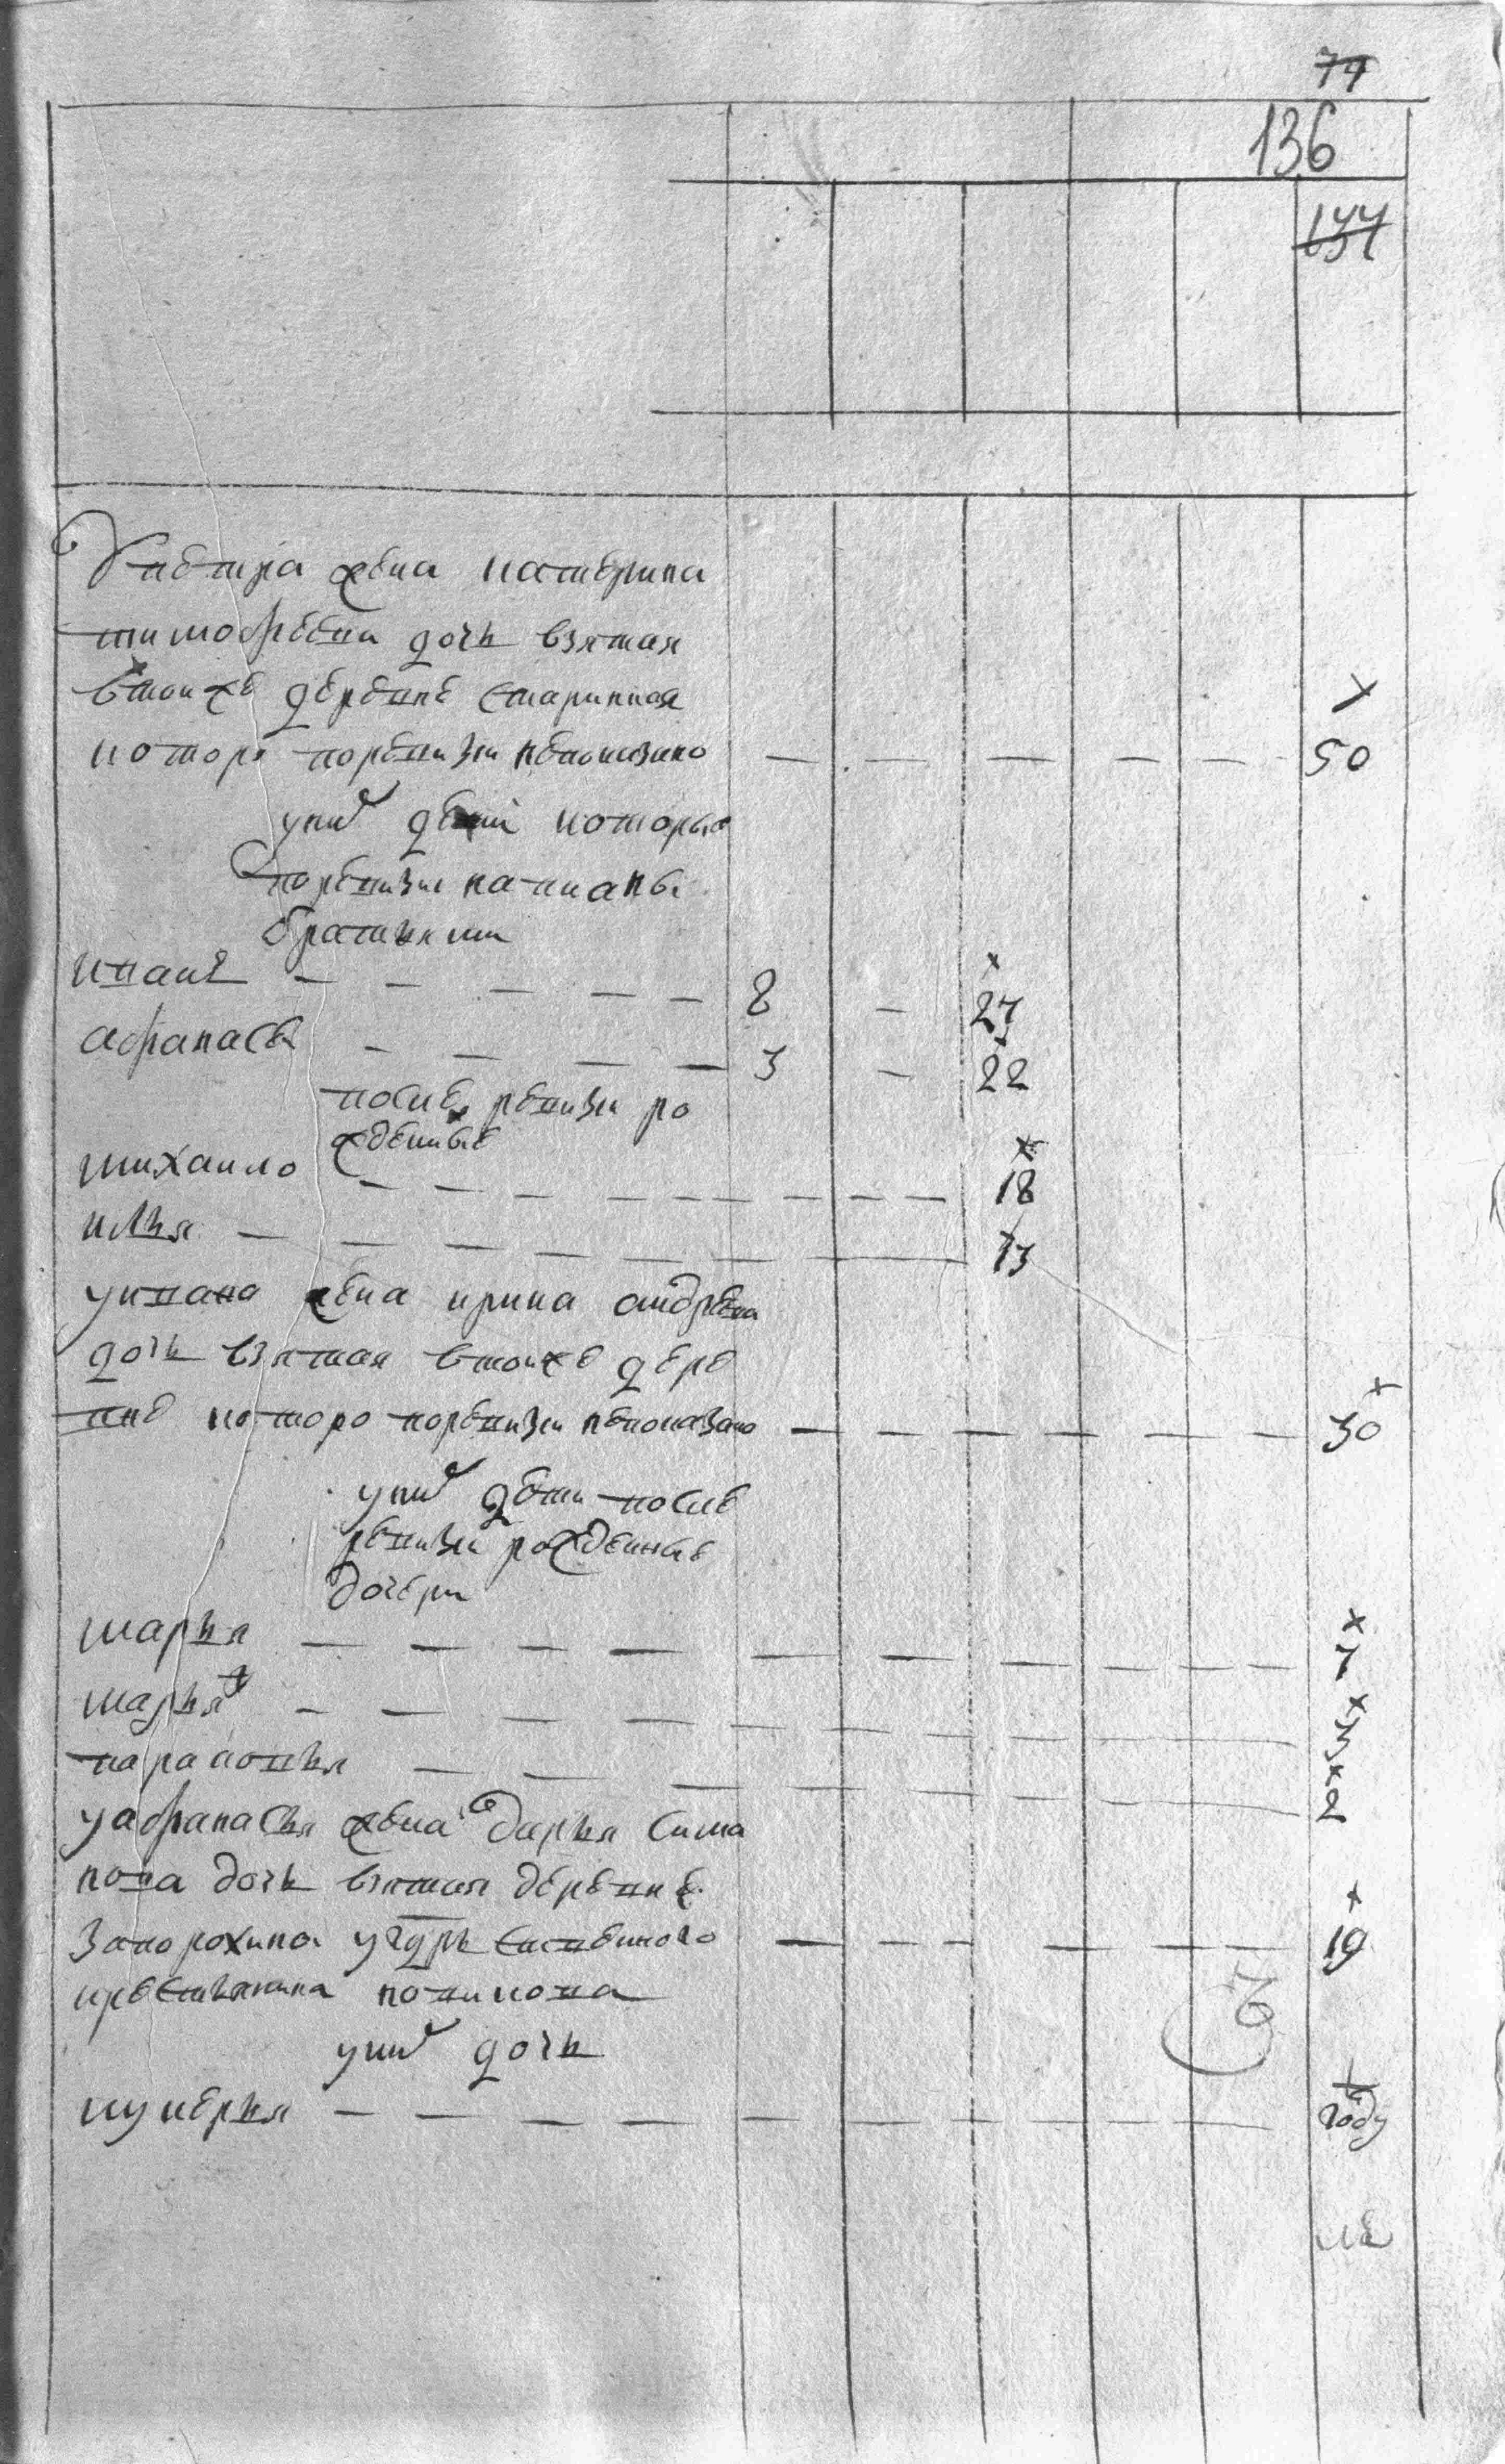 74
136
134
У петра жена катерина
тимофеева дочь взятая
втоиже деревне старинная
которо поревизи непоказано 50
униѵ дети которые
поревизи написаны
братьями
иване 8 27
афанасеи 3 22
после ревизи ро
жденные
михаило 18
илья 13
уивана жена ирина андреева
дочь взятая втоиже дере
вне которо поревизи непоказано 30
униѵ дети после
ревизи рожденные
дочери
марья 7
марья 3
парасковья 2
уафанасья жена дарья сима
нова дочь взятая деревне
запорохина
крестьянина
униѵ дочь
лукерья году